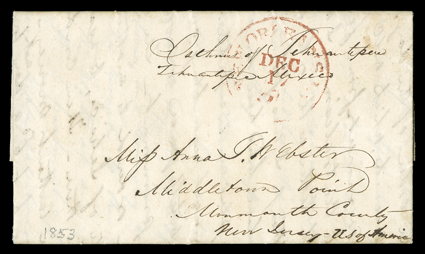 NEW ORLEANS
DEC
17
of Tehuantepec
Tehuantepec Mexico
Miss Anna T. Webster
Middletown Point
Monmouth County
New Jersey - US of America
1853